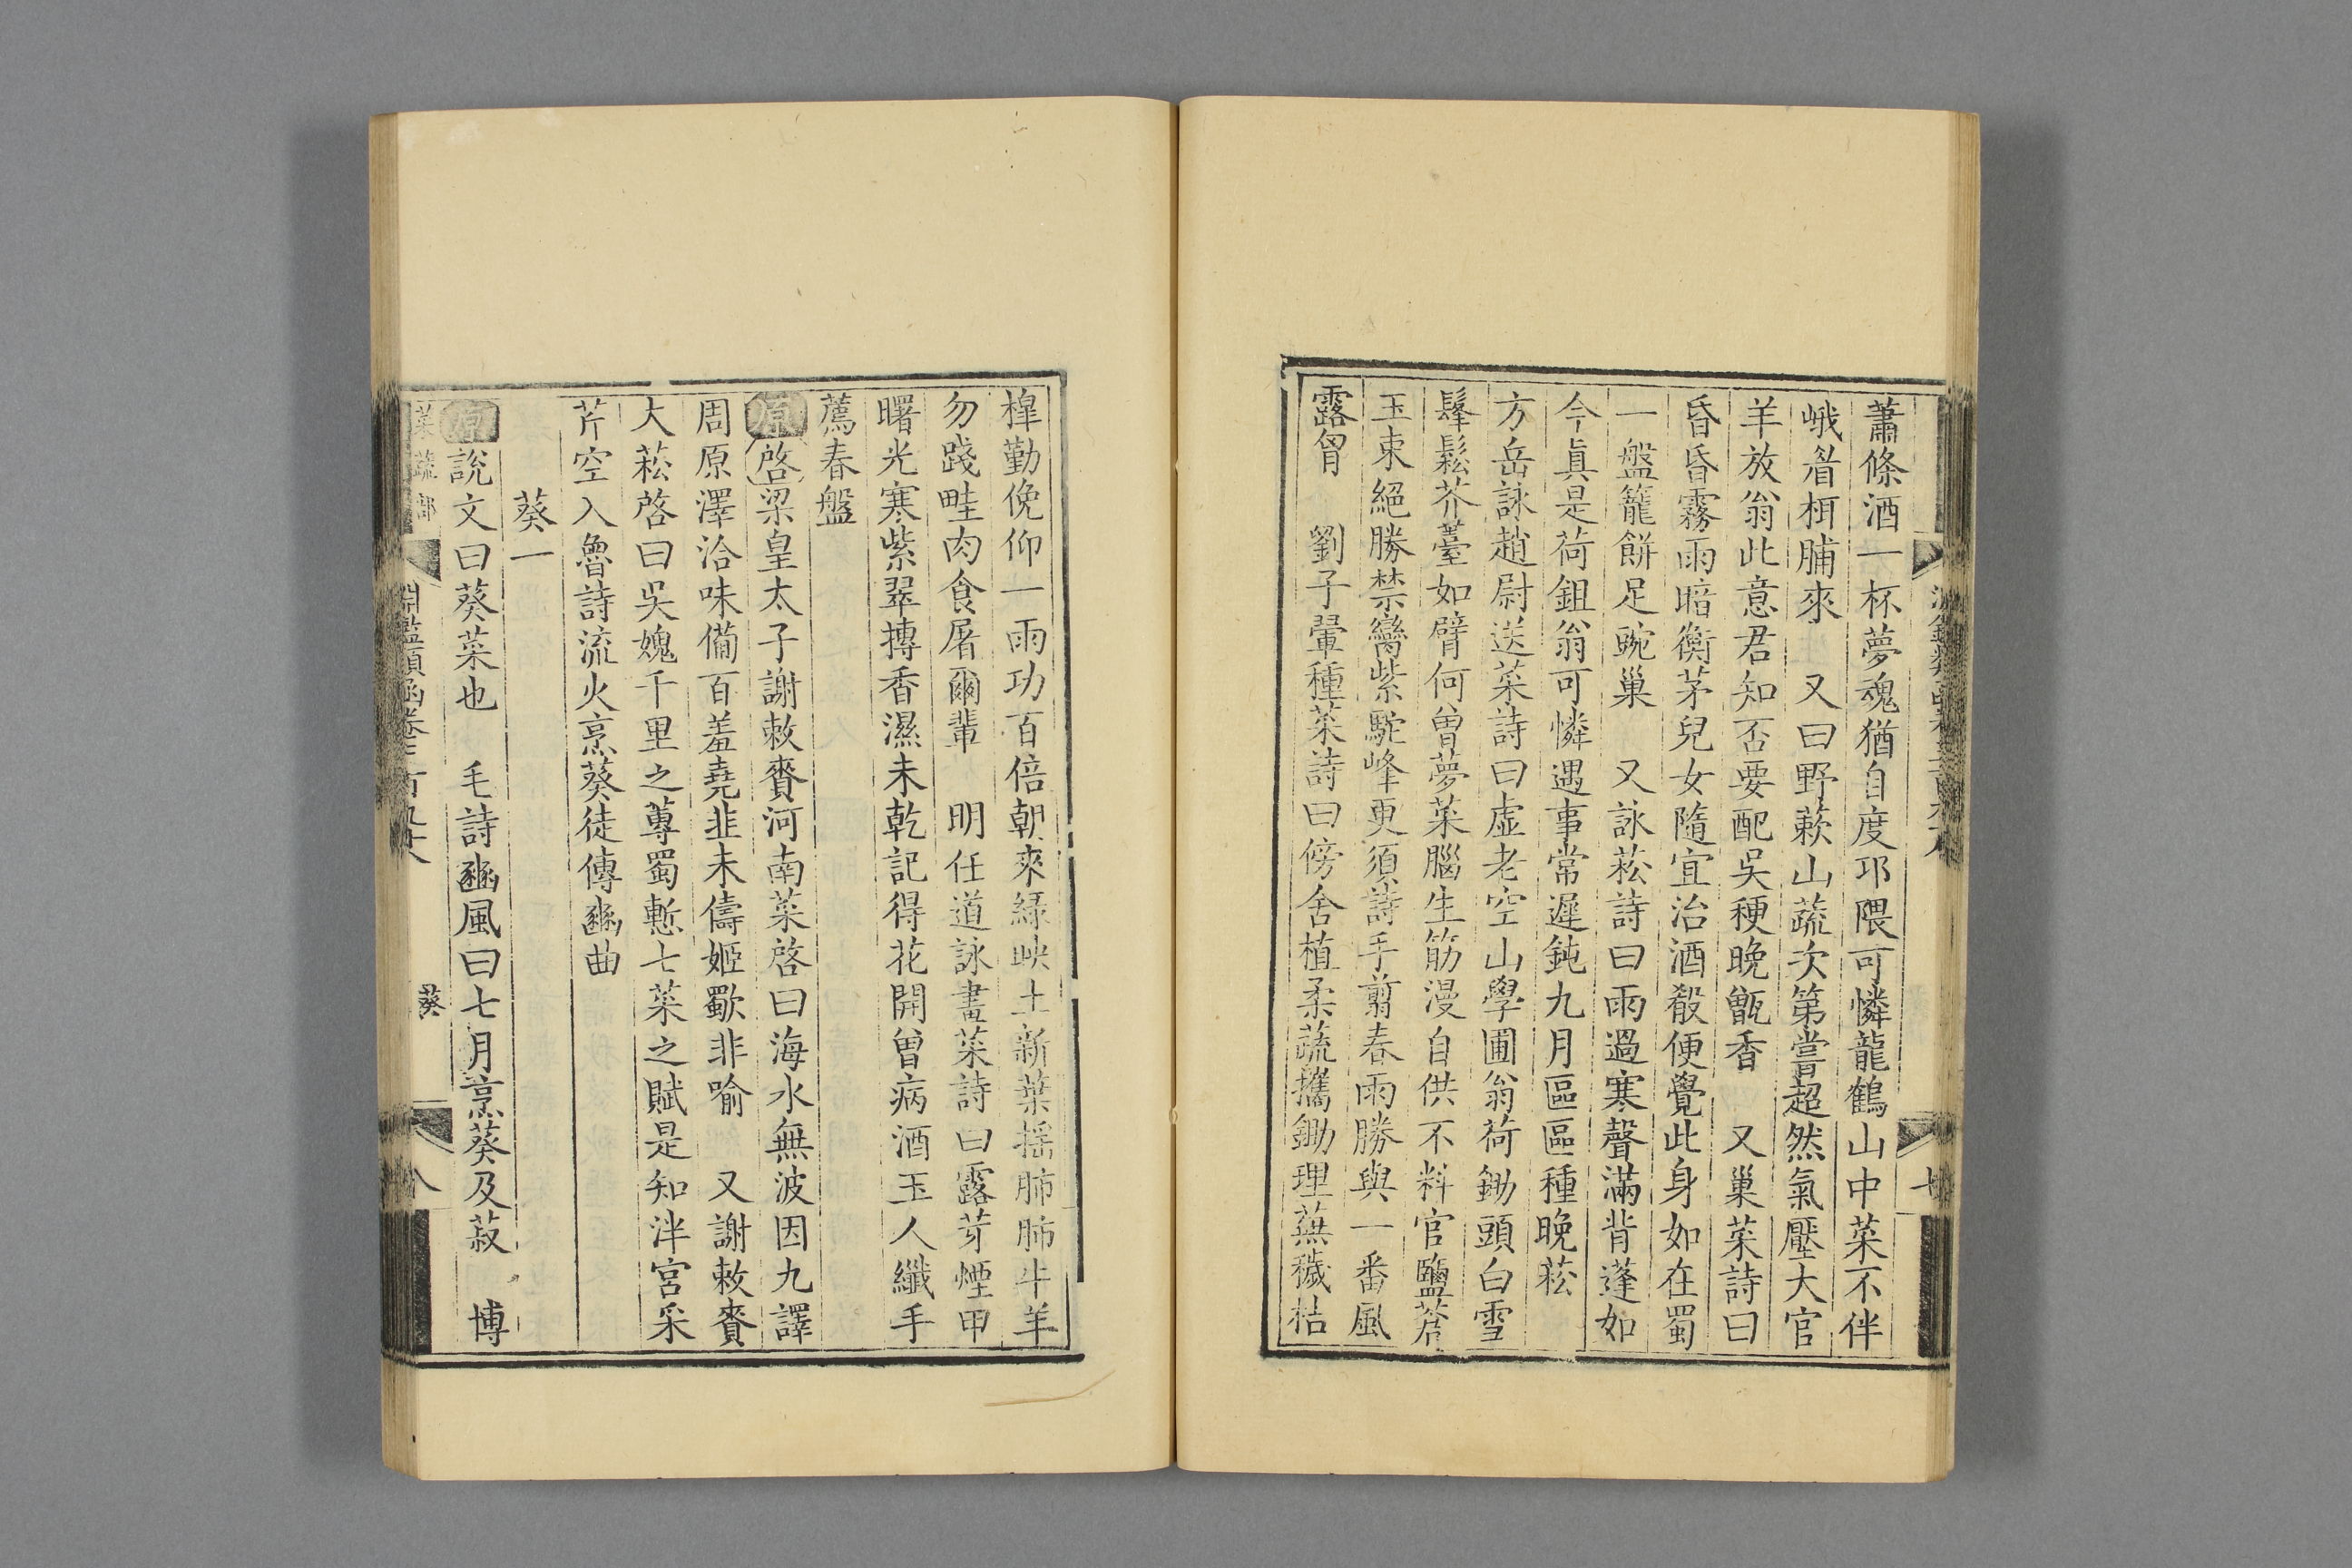 蕭條酒一杯夢魂猶自度邛隈可憐龍鶴山中菜不伴
峨眉栮脯來 又曰野蔌山蔬次第嘗超然氣壓大官
羊放翁此意君知否要配吳稉晚甑香 又巢菜詩曰
昏昏霧雨暗衡茅兒女隨宜治酒殽便覺此身如在蜀
一盤籠餅足豌巢 又詠菘詩曰雨過寒聲滿背蓬如
今真是荷鉏翁可憐遇事常遲鈍九月區區種晚菘
方岳詠趙尉送菜詩曰虛老空山學圃翁荷鋤頭白雪
髼鬆芥薹如臂何曾夢菜腦生筋漫自供不料官鹽蒼
玉束絕勝禁臠紫駝峰更須詩手翦春雨勝與一番風
露胷 劉子翬種菜詩曰傍舍植柔蔬攜鋤理蕪穢桔
橰勤俛仰一雨功百倍朝來綠映土新葉摇肺肺牛羊
勿踐畦肉食屠爾輩 明任道詠畫菜詩曰露芽煙甲
曙光寒紫翠摶香濕未乾記得花開曾病酒玉人纖手
薦春盤
原啓梁皇太子謝敕賚河南菜啓曰海水無波因九譯
周原澤洽味備百羞堯韭未儔姬歜非喻 又謝敕賚
大菘啓曰吳媿千里之蓴蜀慙七菜之賦是知泮宮采
芹空入魯詩流火烹葵徒傳豳曲
葵一
原說文曰葵菜也 毛詩豳風曰七月烹葵及菽 博
菜蔬部 淵鑑類函卷三百九十八 葵 八